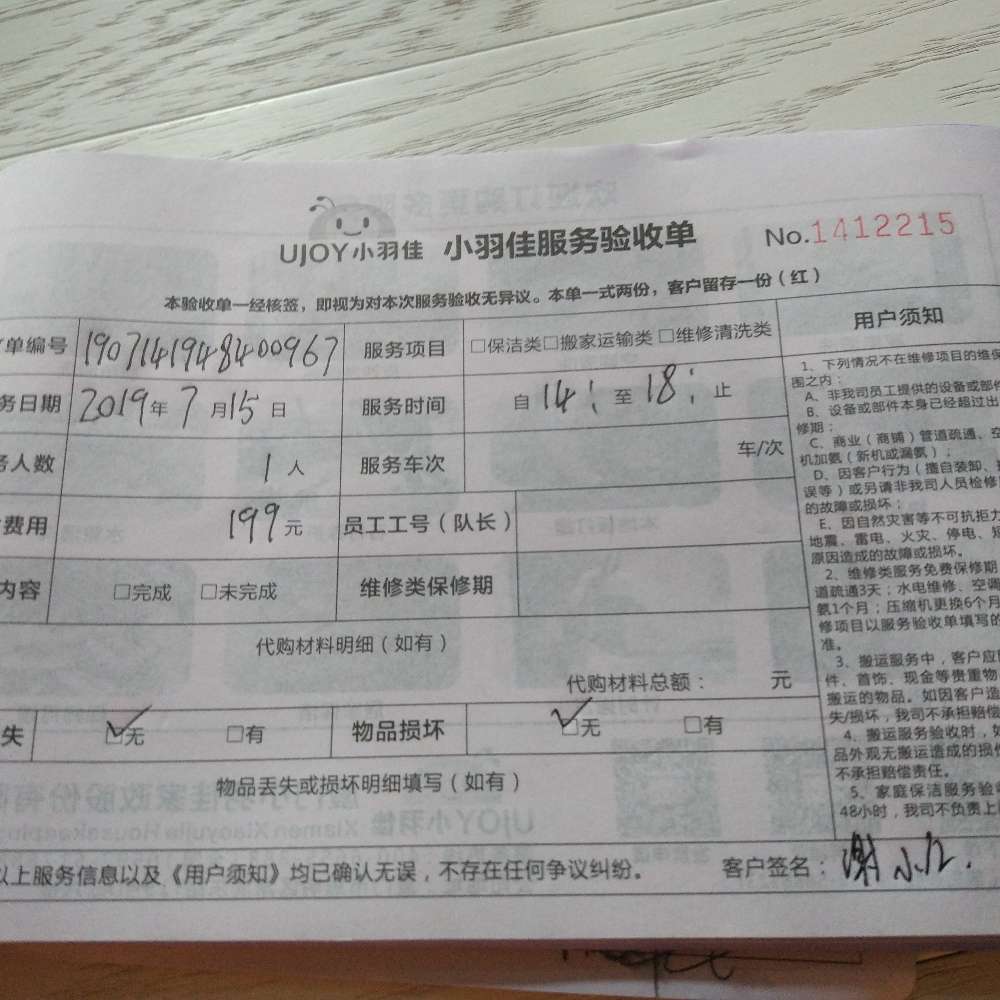 UJOY小羽佳 小羽佳服务验收单 No.1412215
本验收单一经核签，即视为对本次服务验收无异议。本单一式两份，客户留存一份（红）
单编号 190714194840096７ 服务项目 □保洁类□搬家运输类 □维修清洗类
务日期 2019年 7 月15 日 服务时间 自 14: 至 18: 止
务人数 1 人 服务车次 车/次
费用 199元 员工工号（队长）
内容 □完成 □未完成 维修类保修期
代购材料明细（如有）
代购材料总额： 元
失 ☑无 □有 物品损坏 ☑无 □有
物品丢失或损坏明细填写（如有）
以上服务信息以及《用户须知》均已确认无误，不存在任何争议纠纷。 客户签名：谢小
用户须知
1、下列情况不在维修项目的维保
围之内：
A、非我司员工提供的设备或部件
B、设备或部件本身已经超过出
修期：
C、商业（商铺）管道疏通、空
机加氨（新机或漏氨）；
D、因客户行为（擅自装卸、
误等）或另请非我司人员检修
的故障或损坏；
E、因自然灾害等不可抗拒力
地震、雷电、火灾、停电、短
原因造成的故障或损坏。
2、维修类服务免费保修期
道疏通3天；水电维修、空调
氨1个月；压缩机更换6个月
修项目以服务验收单填写的
准。
3、搬运服务中，客户应
件、首饰、现金等贵重物
搬运的物品。如因客户造
失/损坏，我司不承担赔偿
4、搬运服务验收时，如
品外观无搬运造成的损
不承担赔偿责任。
5、家庭保洁服务验收
48小时，我司不负责上